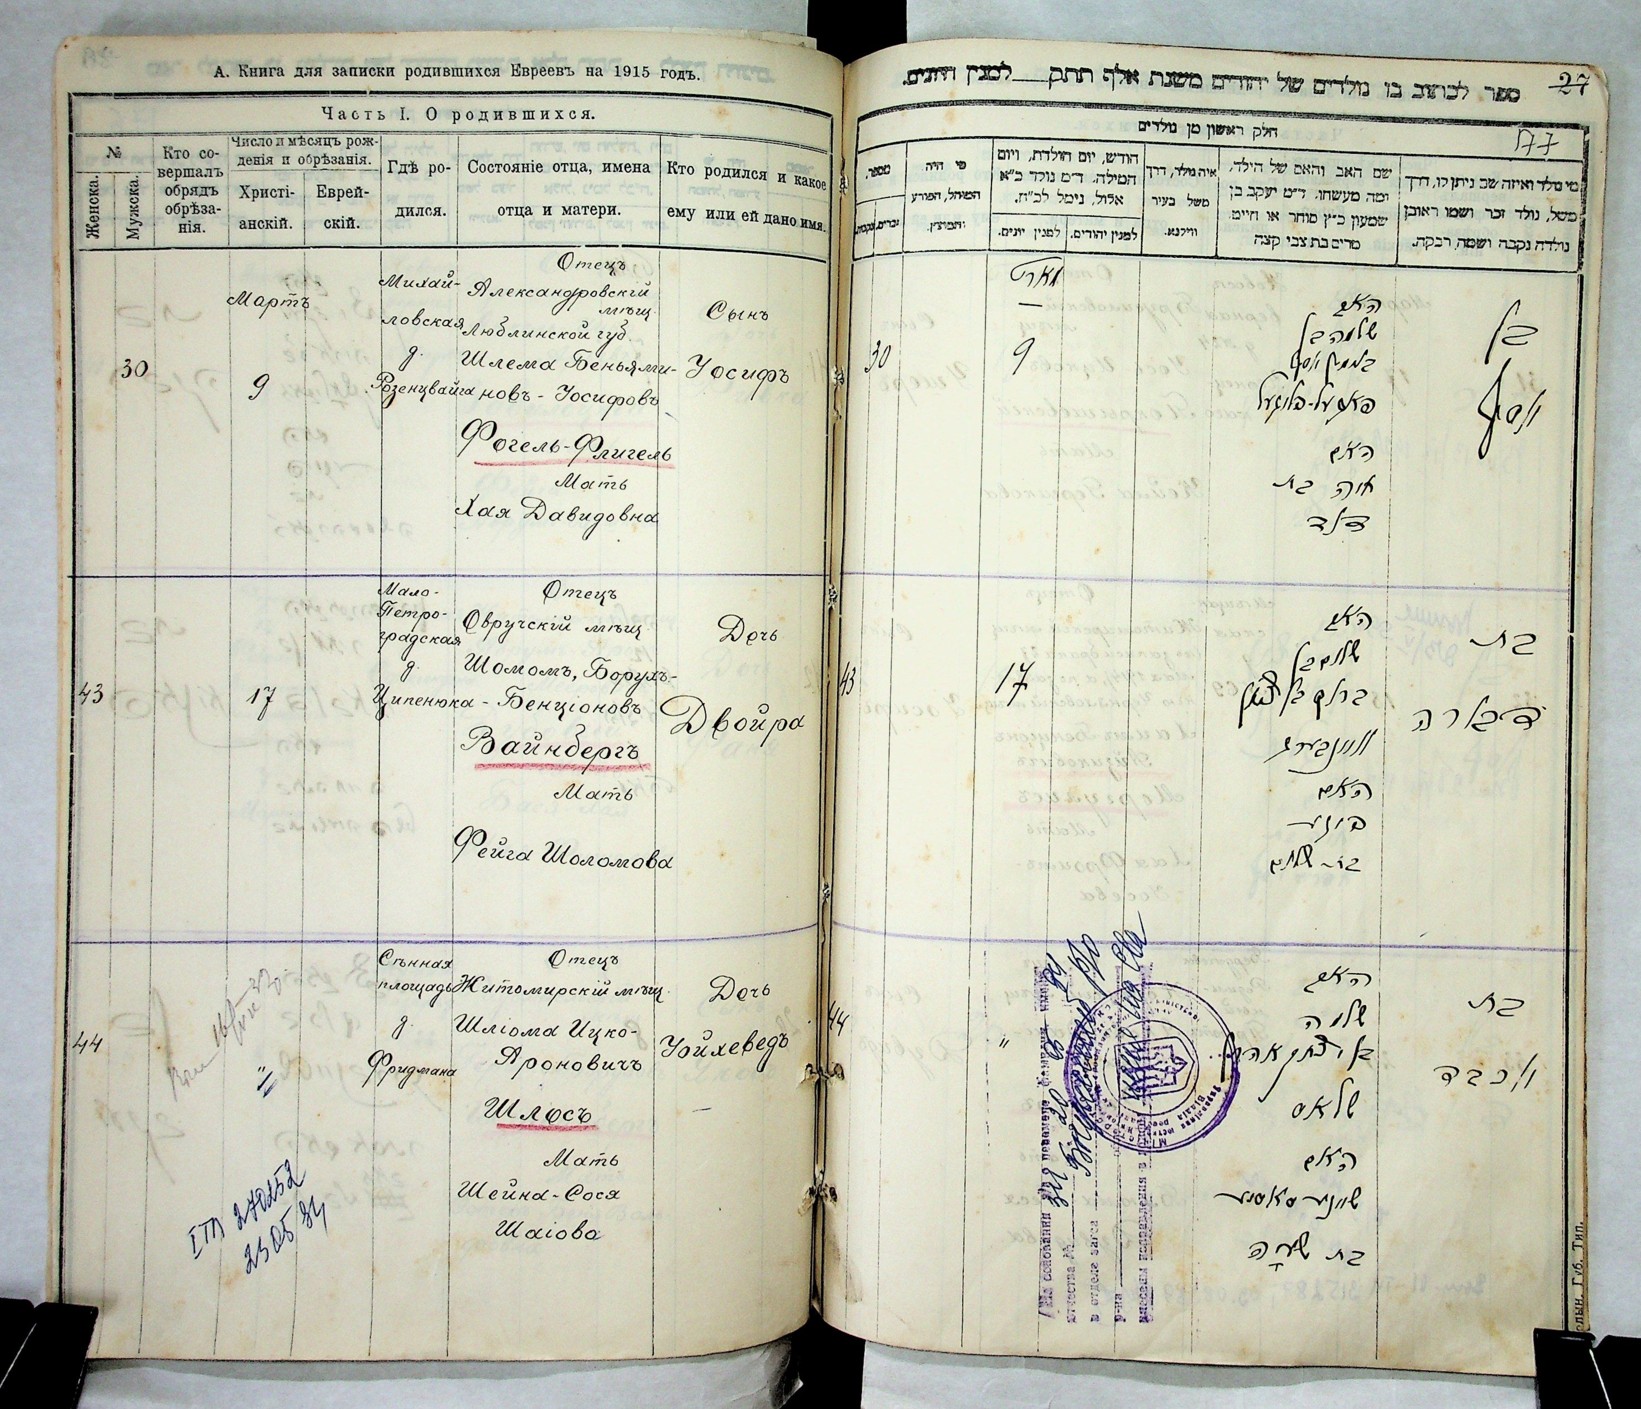 А. Книга для записки родившихся Евреевъ на 1915 годъ.
Часть I. О родившихся.
№
Женска.
Мужска.
Кто со-
вершалъ
обрядъ
обрѣза-
нія.
Число и мѣсяцъ рож-
денія и обрѣзанія.
Христі-
анскій.
Еврей-
скій.
Гдѣ ро-
дился.
Состояніе отца, имена
отца и матери.
Кто родился и какое
ему или ей дано имя.
30
Мартъ
9
Михай-
ловская
д.
Розенцвайга
Отецъ
Александровскій
мѣщ.
Люблинской губ.
Шлема Беньями-
новъ-Іосифовъ
Фогель-Флигель
Мать
Хая Давидовна
Сынъ
Іосифъ
43
17
Мало-
Петро-
градская
д.
Ципенюка
Отецъ
Овручскій мѣщ.
Шомомъ, Борухъ-
-Бенціоновъ
Вайнбергъ
Мать
Фейга Шоломова
Дочь
Двойра
44
"
Сѣнная
площадь
д.
Фридмана
Отецъ
Житомирскій мѣщ.
Шліома Ицко-
Ароновичъ
Шлосъ
Мать
Шейна-Сося
Шаіова
Дочь
Іойхеведъ
270252
230584
27
177
ספר לכתוב בו נולדים של יהודים משנת אלף תתק למנין היונים.
חלק ראשון מן נולדים
מספר.
זכרים.
נקבות.
מי היה
המוהל, הפורע
והמוצץ.
חודש, יום הולדת, ויום
המילה. ד״מ נולד כ״א
אלול, נימל לכ״ח.
למנין יונים.
למנין יהודים.
איה נולד, דרך
משל בעיר
ווילנא.
שם האב והאם של הילד,
ומה מעשהו. ד״מ יעקב בן
שמעון כ״ץ סוחר או חיים
מרים בת צבי קצה
מי נולד ואיזה שם ניתן לו, דרך
משל, נולד זכר ושמו ראובן
נולדה נקבה ושמה רבקה.
30
מארט
9
האב
שלמה בן
בנימין יוסף
פאגעל-פליגעל
האם
חיה בת
דוד
בן
יוסף
43
17
האב
שלום בן
ברוך בן ציון
וויינבערג
האם
פייגע
בת שלום
בת
דבורה
44
"
האב
שלמה
בן יצחק אהרן
שלאס
האם
שיינע סאסיע
בת ישעיה
בת
יוכבד
На основании
о перемене
отчества №
в отделе загса
р-на
Волын. Губ. Тип.